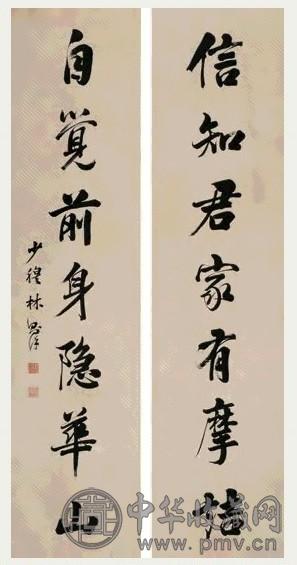 信知君家有摩
自覺前身隱華山
少穆林則徐
中华收藏网
www.pmv.cn